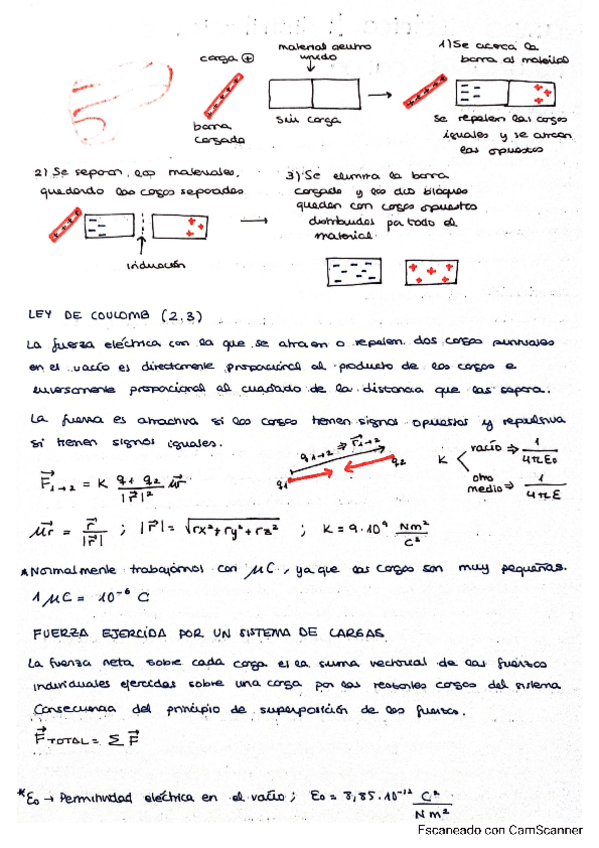 carga ⊕
material neutro
unido
barra
cargada
sin carga
1) Se acerca la
barra al material
se repelen las cargas
iguales y se atraen
las opuestas
2) Se separan los materiales,
quedando las cargas separadas
inducción
3) Se elimina la barra
cargada y los dos bloques
quedan con cargas opuestas
distribuidas por todo el
material.
LEY DE COULOMB (2.3)
La fuerza eléctrica con la que se atraen o repelen dos cargas puntuales
en el vacío es directamente proporcional al producto de las cargas e
inversamente proporcional al cuadrado de la distancia que las separa.
La fuerza es atractiva si las cargas tienen signos opuestos y repulsiva
si tienen signos iguales.
F⃗1→2 = K q1 q2 / |r⃗|² u⃗r
q1→2 ⇒ r⃗1→2
q1 q2
K
vacío ⇒ 1/4πε0
otro
medio ⇒ 1/4πε
u⃗r = r⃗/|r⃗| ; |r⃗| = √rx²+ry²+rz² ; K = 9·10⁹ Nm²/C²
*Normalmente trabajamos con μC, ya que las cargas son muy pequeñas.
1 μC = 10⁻⁶ C
FUERZA EJERCIDA POR UN SISTEMA DE CARGAS
La fuerza neta sobre cada carga es la suma vectorial de las fuerzas
individuales ejercidas sobre una carga por las restantes cargas del sistema
Consecuencia del principio de superposición de las fuerzas.
F⃗TOTAL = Σ F⃗
*ε0 → Permitividad eléctrica en el vacío ; ε0 = 8,85·10⁻¹² C²/Nm²
Escaneado con CamScanner